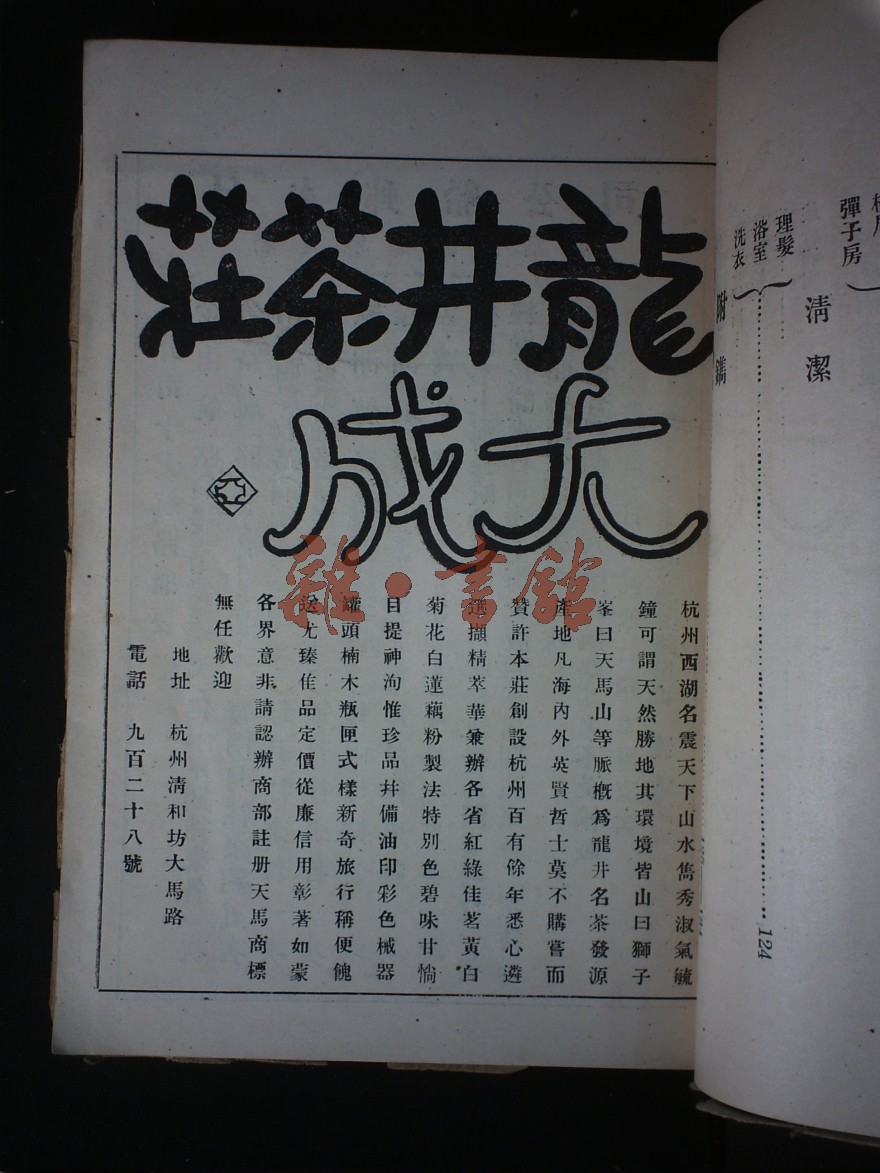 龍井茶莊
大成
杭州西湖名震天下山水雋秀淑氣毓
鐘可謂天然勝地其環境皆山曰獅子
峯曰天馬山等脈概爲龍井名茶發源
產地凡海內外英賢哲士莫不購嘗而
贊許本莊創設杭州百有餘年悉心遴
選擷精萃華兼辦各省紅綠佳茗黃白
菊花白蓮藕粉製法特別色碧味甘惝
目提神洵惟珍品幷備油印彩色械器
罐頭楠木瓶匣式樣新奇旅行稱便餽
送尤臻佳品定價從廉信用彰著如蒙
各界意非請認辦商部註册天馬商標
無任歡迎
地址 杭州淸和坊大馬路
電話 九百二十八號
雜·書館
彈子房
淸潔
理髮
浴室
洗衣
附鐫
124